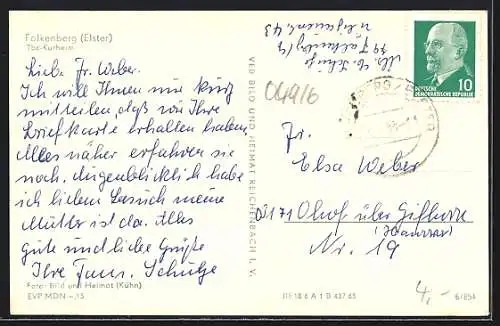 Falkenberg (Elster)
Tbc-Kurheim
Liebe Fr. Weber.
Ich will Ihnen nur kurz
mitteilen, daß wir Ihre
Briefkarte erhalten haben.
Alles näher erfahren sie
noch. Augenblicklich habe
ich lieben Besuch meine
Mutter ist da. Alles
gute und liebe Grüße
Ihre Fam. Schulze
Foto: Bild und Heimat (Kühn)
EVP MDN -,15
VEB BILD UND HEIMAT REICHENBACH I. V.
79 Falkenberg/
04916
10
DEUTSCHE
DEMOKRATISCHE REPUBLIK
Fr.
Elsa Weber
3171 Ohof über Gifhorn
(Hannover)
Nr. 19
III 18 6 A 1 B 437 65
4,-
6/854